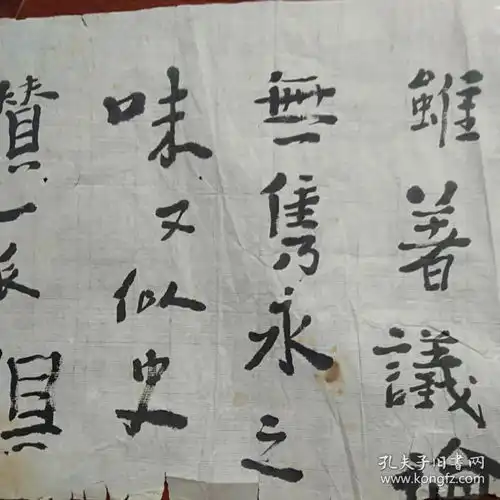 雖著議論
無雋永之
味又似史
贊一派俱
孔夫子旧书网
www.kongfz.com